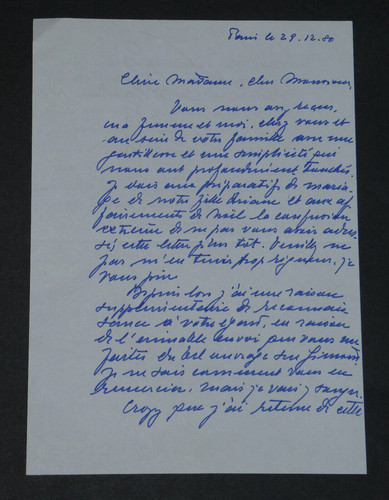 Paris le 29.12.80
Chère Madame, cher Monsieur,
Vous nous avez reçus,
ma femme et moi, chez vous et
au sein de votre famille avec une
gentillesse et une simplicité qui
nous ont profondément touchés.
Je dois aux préparatifs de maria-
ge de notre fille et aux
de Noël la confusion
extrême de ne pas vous avoir adres-
sé cette lettre plus tôt. Veuillez ne
pas m'en tenir trop rigueur, je
vous prie.
Depuis lors j'ai une raison
supplémentaire de reconnais-
sance à votre égard, en raison
de l'aimable envoi que vous me
faites du bel ouvrage sur
Je ne sais comment vous en
remercier, mais je vais y songer.
Croyez que j'ai retenu de cette